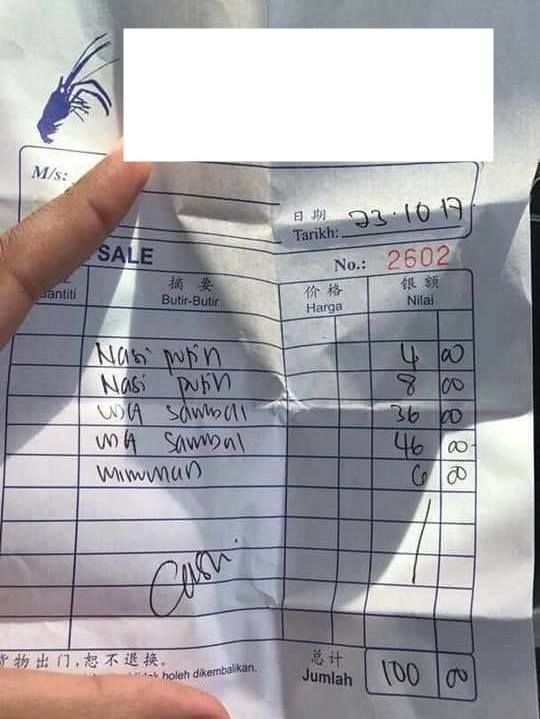 M/s:
日期
Tarikh: 23.10.17
SALE
No.: 2602
摘要 价格 银额
Butir-Butir Harga Nilai
Nasi putih 4 00
Nasi putih 8 00
UDA sambal 36 00
UDA sambal 46 00
minuman 6 00
Cash
货物出门,恕不退换. 总计
boleh dikembalikan. Jumlah 100 00